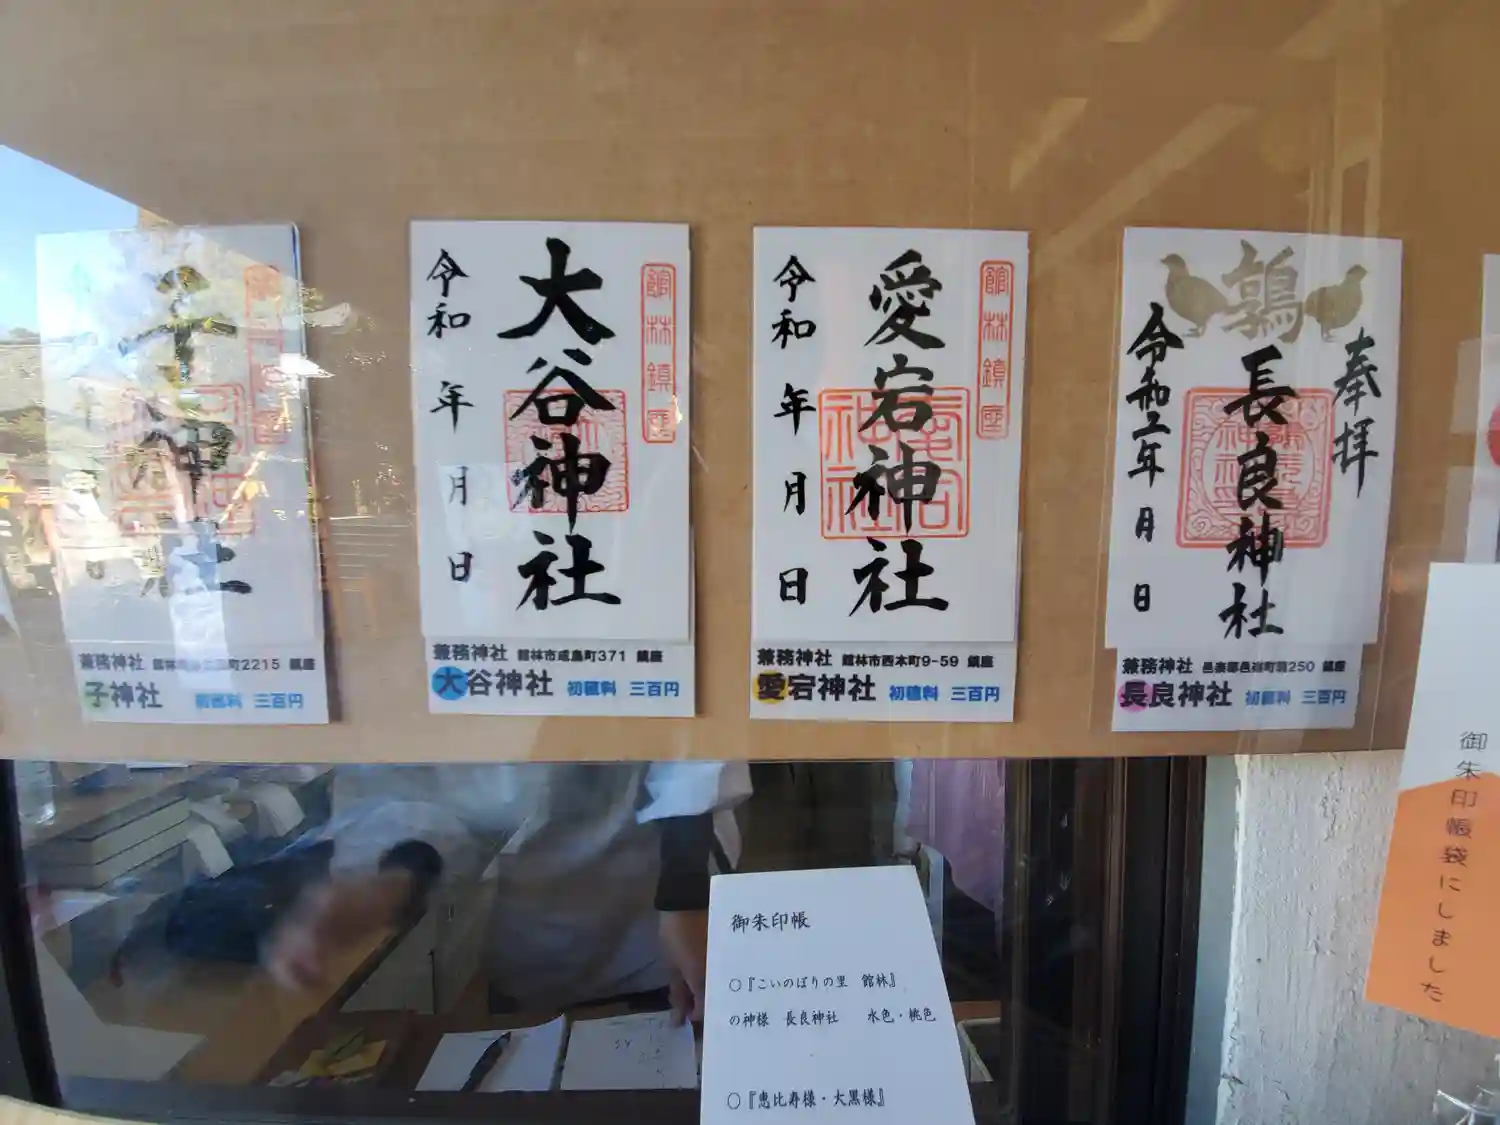 子神社
兼務神社 2215 鎮座
子神社 初穂料 三百円
館林鎮座
大谷神社
令和 年 月 日
兼務神社 館林市成島町371 鎮座
大谷神社 初穂料 三百円
館林鎮座
愛宕神社
令和 年 月 日
兼務神社 館林市西本町9-59 鎮座
愛宕神社 初穂料 三百円
奉拝
鶉
長良神社
令和 年 月 日
兼務神社 邑楽郡邑楽町鶉250 鎮座
長良神社 初穂料 三百円
御朱印帳
○『こいのぼりの里 館林』
の神様 長良神社 水色・桃色
○『恵比寿様・大黒様』
御朱印帳袋にしました